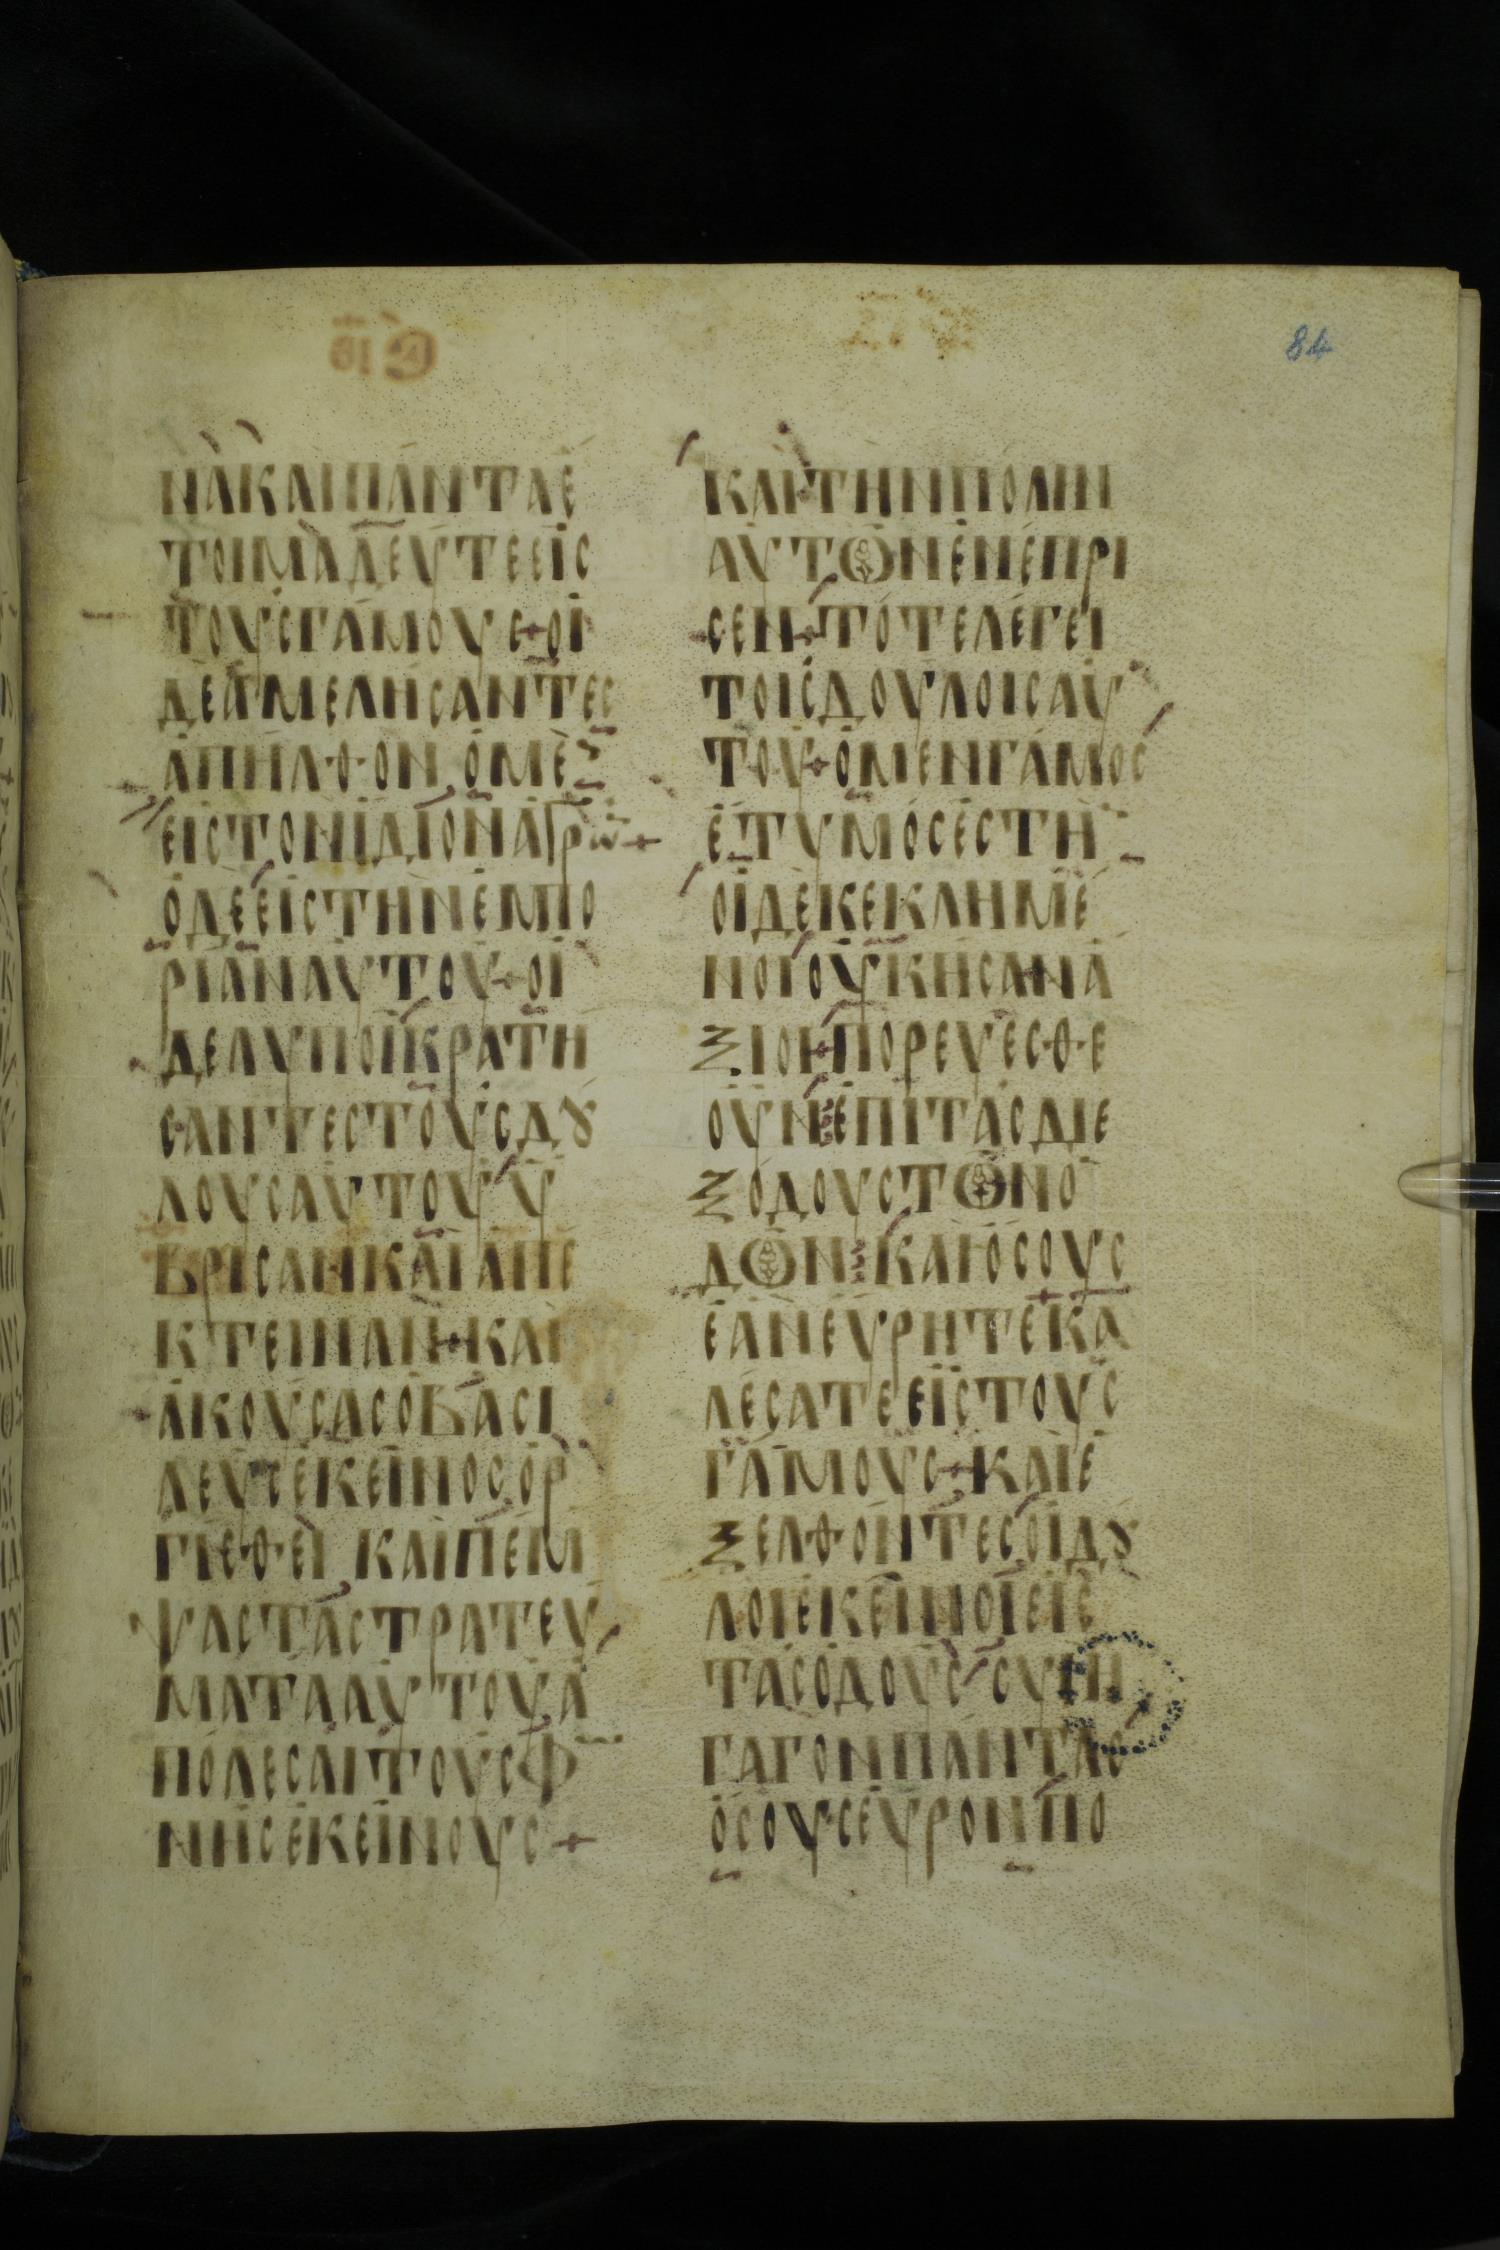 84
ΝΑΚΑΙΠΑΝΤΑΕ
ΤΟΙΜΑΔΕΥΤΕΕΙΣ
ΤΟΥΣΓΑΜΟΥΣ+ΟΙ
ΔΕΑΜΕΛΗΣΑΝΤΕΣ
ΑΠΗΛΘΟΝΟΜΕ
ΕΙΣΤΟΝΙΔΙΟΝΑΓΡῶ+
ΟΔΕΕΙΣΤΗΝΕΜΠΟ
ΡΙΑΝΑΥΤΟΥ+ΟΙ
ΔΕΛΥΠΟΙΚΡΑΤΗ
ΣΑΝΤΕΣΤΟΥΣΔȢ
ΛΟΥΣΑΥΤΟΥΥ
ΒΡΙΣΑΝΚΑΙΑΠΕ
ΚΤΕΙΝΑΝ+ΚΑΙ
ΑΚΟΥΣΑΣΟΒΑΣΙ
ΛΕΥΣΕΚΕΙΝΟΣΟΡ
ΓΙΣΘΕΙ ΚΑΙΠΕΜ
ΨΑΣΤΑΣΤΡΑΤΕΥ
ΜΑΤΑΑΥΤΟΥΑ
ΠΟΛΕΣΑΙΤΟΥΣΦ
ΝΗΣΕΚΕΙΝΟΥΣ+
ΚΑΙΤΗΝΠΟΛΙΝ
ΑΥΤΩΝΕΝΕΠΡΙ
ΣΕΝ+ΤΟΤΕΛΕΓΕΙ
ΤΟΙΣΔΟΥΛΟΙΣΑΥ
ΤΟΥ+ΟΜΕΝΓΑΜΟΣ
ΕΤΥΜΟΣΕΣΤΗ
ΟΙΔΕΚΕΚΛΗΜΕ
ΝΟΙΟΥΚΗΣΑΝΑ
ΞΙΟΙ+ΠΟΡΕΥΕΣΘΕ
ΟΥΝΕΠΙΤΑΣΔΙΕ
ΞΟΔΟΥΣΤΩΝΟ
ΔΩΝΚΑΙΟΣΟΥΣ
ΕΑΝΕΥΡΗΤΕΚΑ
ΛΕΣΑΤΕΕΙΣΤΟΥΣ
ΓΑΜΟΥΣ+ΚΑΙΕ
ΞΕΛΘΟΝΤΕΣΟΙΔȢ
ΛΟΙΕΚΕΙΝΟΙΕΙΣ
ΤΑΣΟΔΟΥΣΣΥΝΗ
ΓΑΓΟΝΠΑΝΤΑΣ
ΟΣΟΥΣΕΥΡΟΝΠΟ